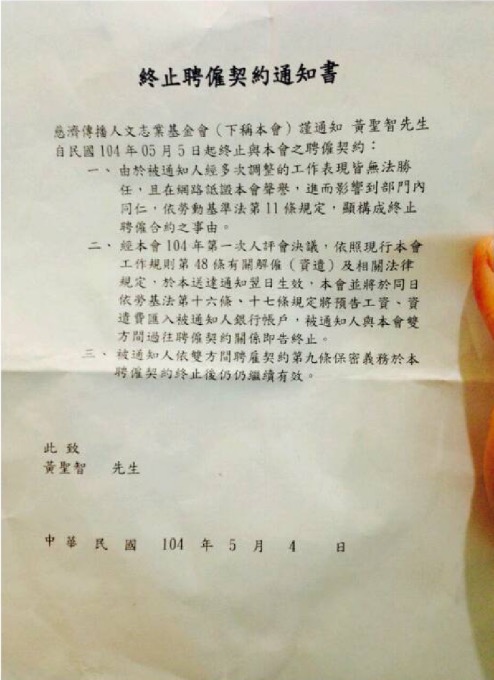 終止聘僱契約通知書
慈濟傳播人文志業基金會（下稱本會）謹通知 黃聖智先生
自民國 104 年 05 月 5 日起終止與本會之聘僱契約：
一、由於被通知人經多次調整的工作表現皆無法勝
任，且在網路詆譭本會聲譽，進而影響到部門內
同仁，依勞動基準法第 11 條規定，顯構成終止
聘僱合約之事由。
二、經本會 104 年第一次人評會決議，依照現行本會
工作規則第 48 條有關解僱（資遣）及相關法律
規定，於本送達通知翌日生效，本會並將於同日
依勞基法第十六條、十七條規定將預告工資、資
遣費匯入被通知人銀行帳戶，被通知人與本會雙
方間過往聘僱契約關係即告終止。
三、被通知人依雙方間聘雇契約第九條保密義務於本
聘僱契約終止後仍仍繼續有效。
此 致
黃聖智 先生
中 華 民 國 104 年 5 月 4 日